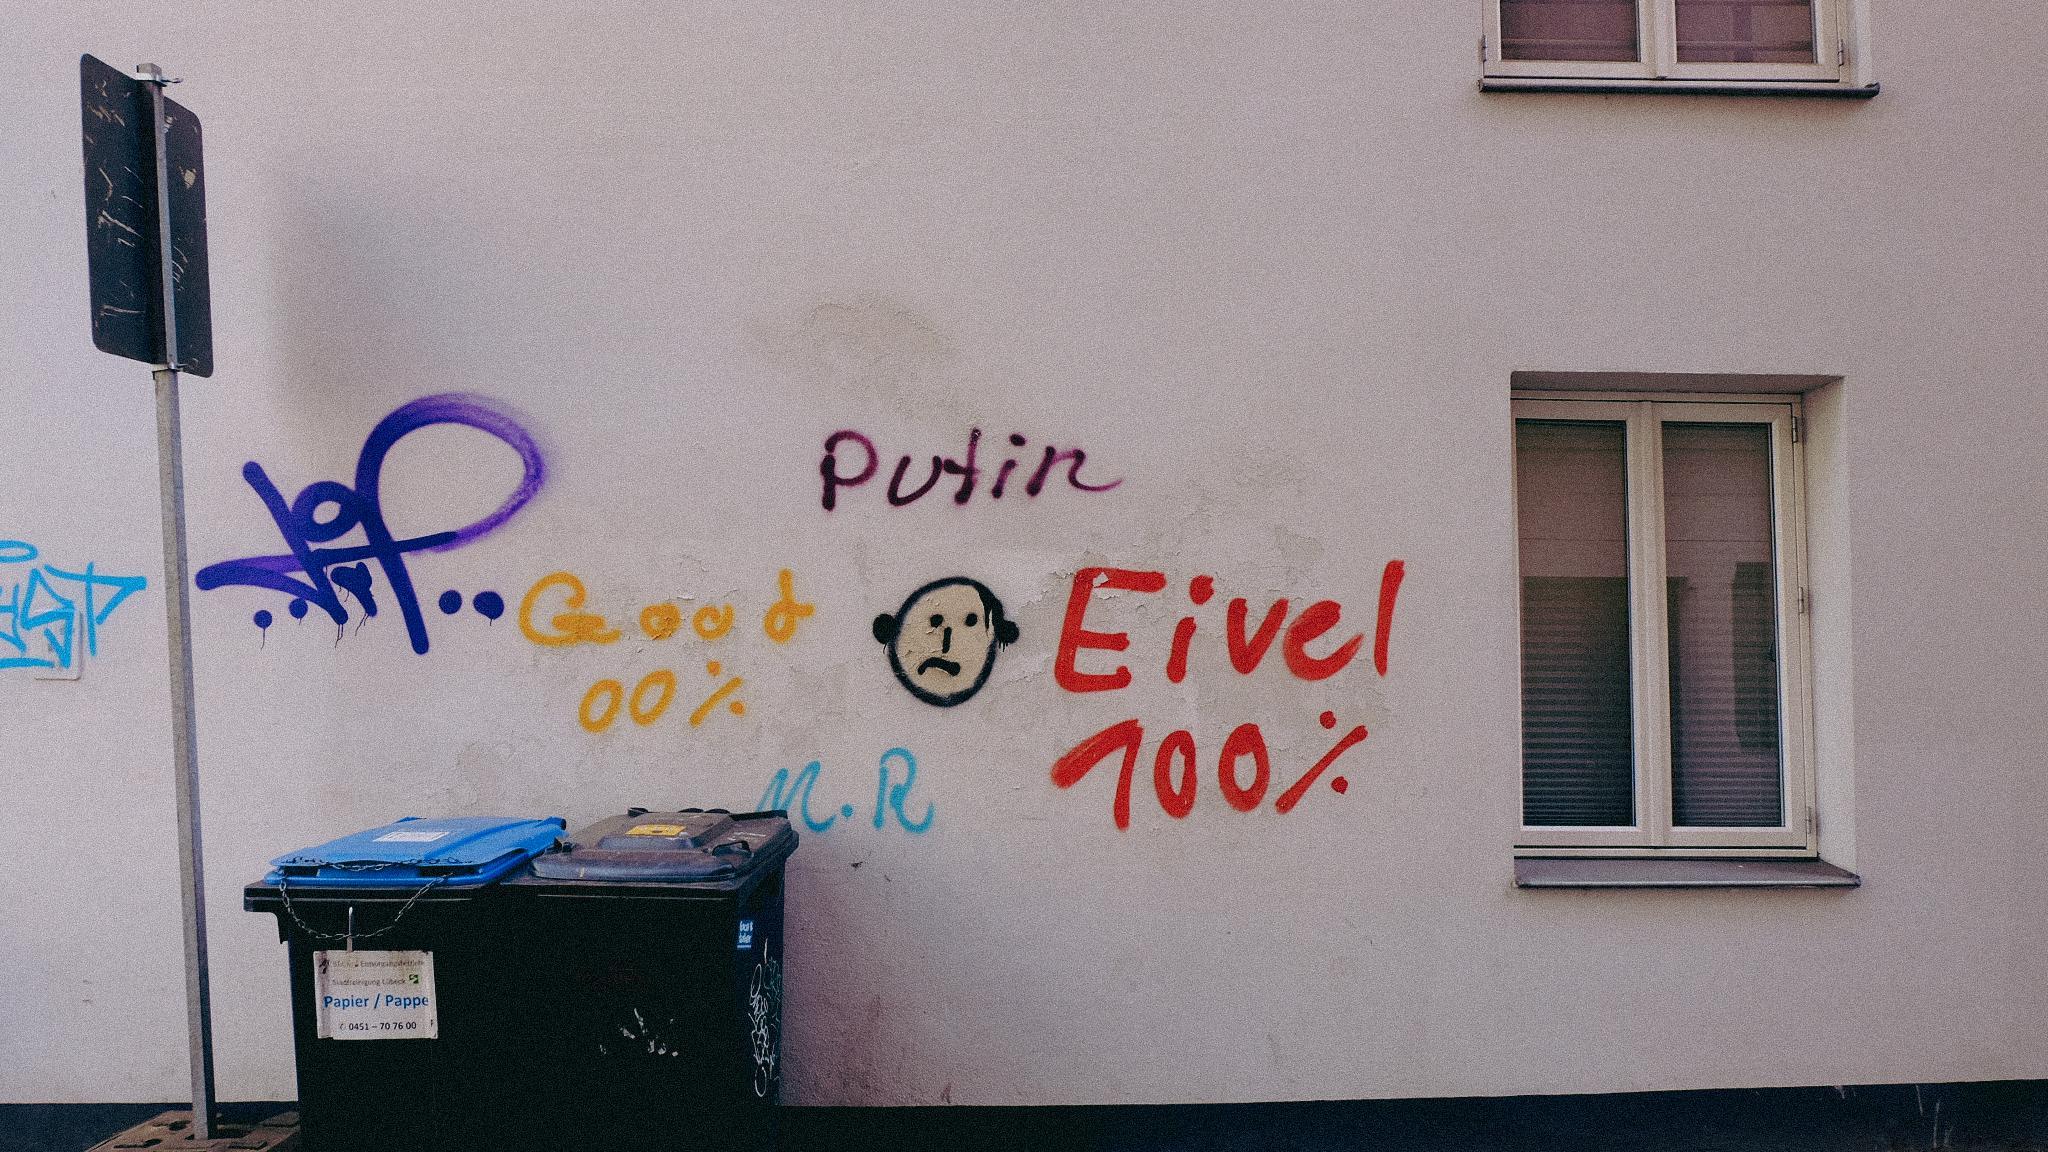 Putin
Good
00%
Eivel
100%
M.R
Entsorgungsbetriebe
Stadtreinigung Lübeck
Papier / Pappe
0451 – 70 76 00